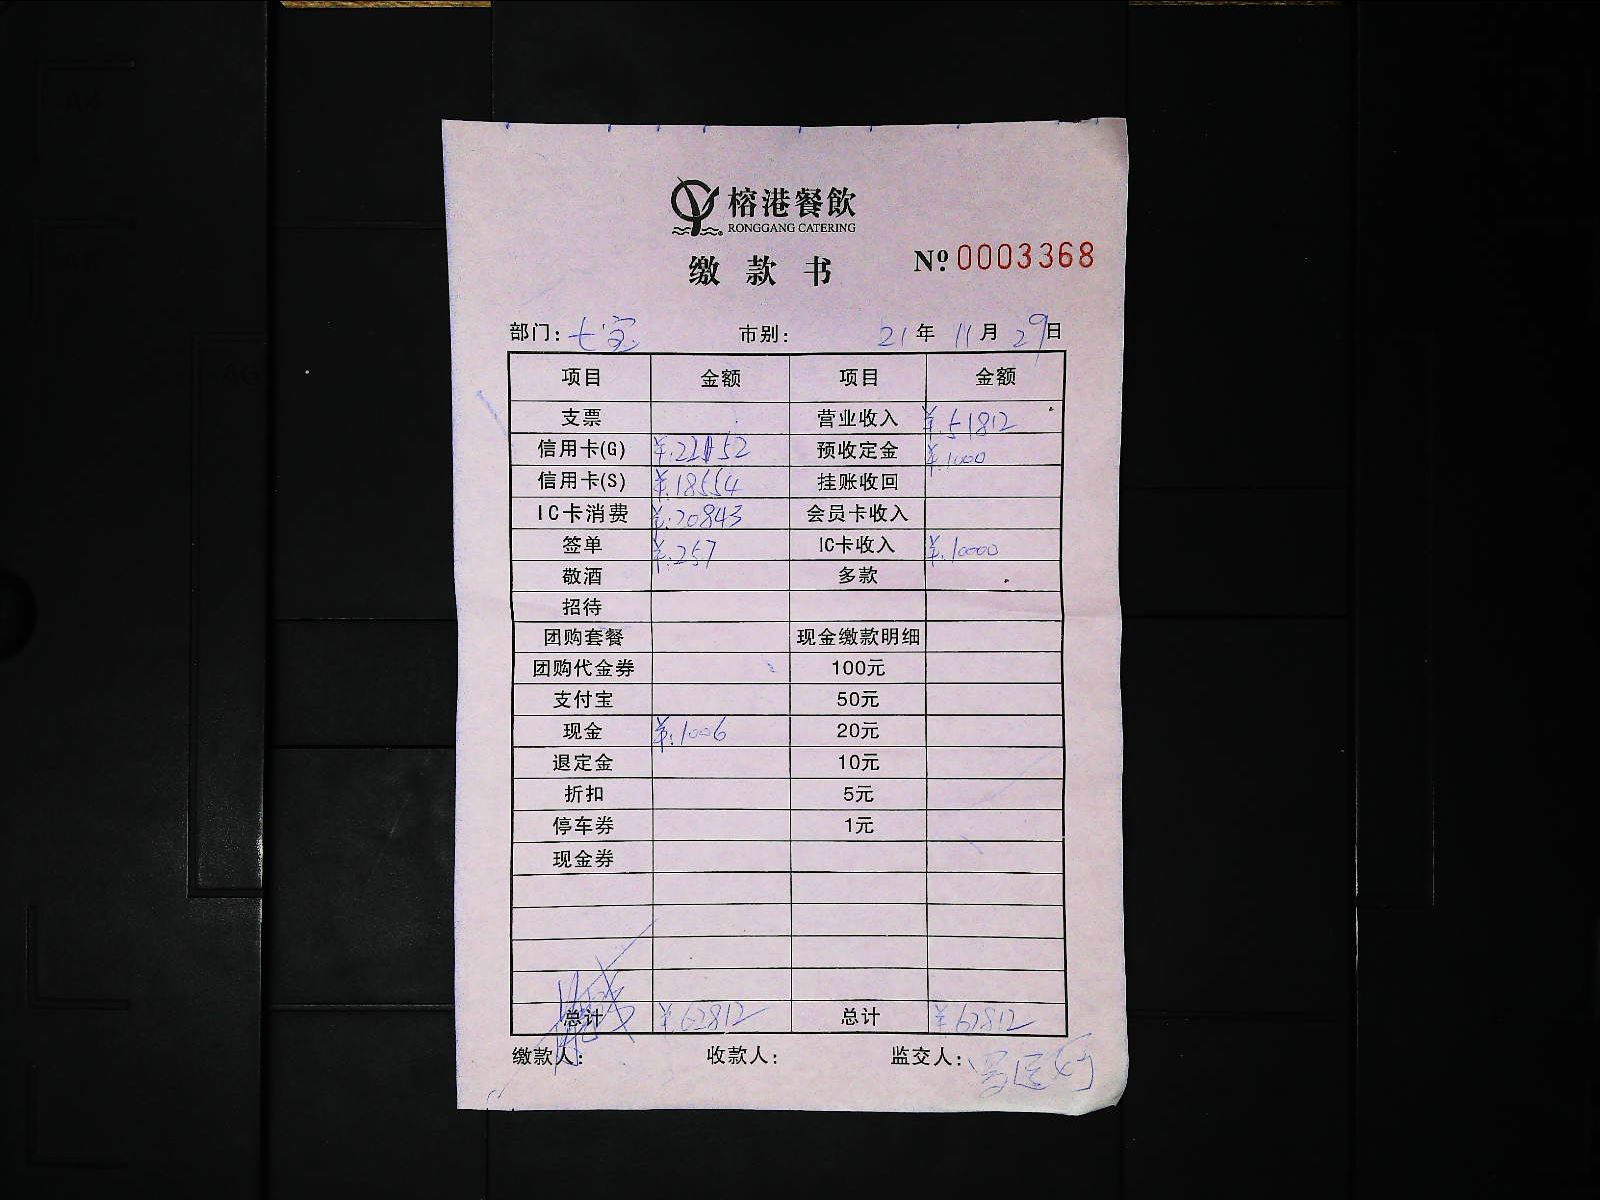 榕港餐飲
RONGGANG CATERING
缴款书 №0003368
部门: 七宝 市别: 21年 11月 29日
项目 金额 项目 金额
支票 营业收入 ¥.51812
信用卡(G) ¥.22152 预收定金 ¥.1000
信用卡(S) ¥.18554 挂账收回
IC卡消费 ¥.20843 会员卡收入
签单 ¥.257 IC卡收入 ¥.10000
敬酒 多款
招待
团购套餐 现金缴款明细
团购代金券 100元
支付宝 50元
现金 ¥.1006 20元
退定金 10元
折扣 5元
停车券 1元
现金券
总计 ¥62812 总计 ¥62812
缴款人: 收款人: 监交人: